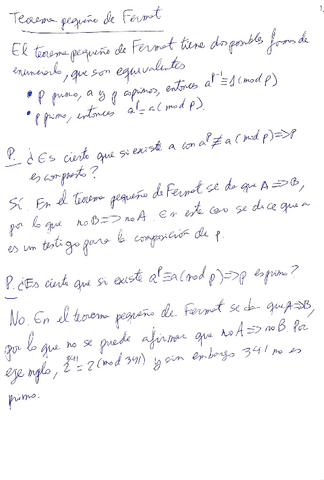 Teorema pequeño de Fermat
1
El teorema pequeño de Fermat tiene dos posibles formas de
enunciarlo, que son equivalentes
• p primo, a y p coprimos, entonces a^(p-1) ≡ 1 (mod p)
• p primo, entonces a^p ≡ a (mod p).
P. ¿Es cierto que si existe a con a^p ≢ a (mod p) => p
es compuesto?
Sí. En el teorema pequeño de Fermat se da que A => B,
por lo que no B => no A. En este caso se dice que a
es un testigo para la composición de p.
P. ¿Es cierto que si existe a^p ≡ a (mod p) => p es primo?
No. En el teorema pequeño de Fermat se da que A => B,
por lo que no se puede afirmar que no A => no B. Por
ejemplo, 2^341 ≡ 2 (mod 341) y sin embargo 341 no es
primo.